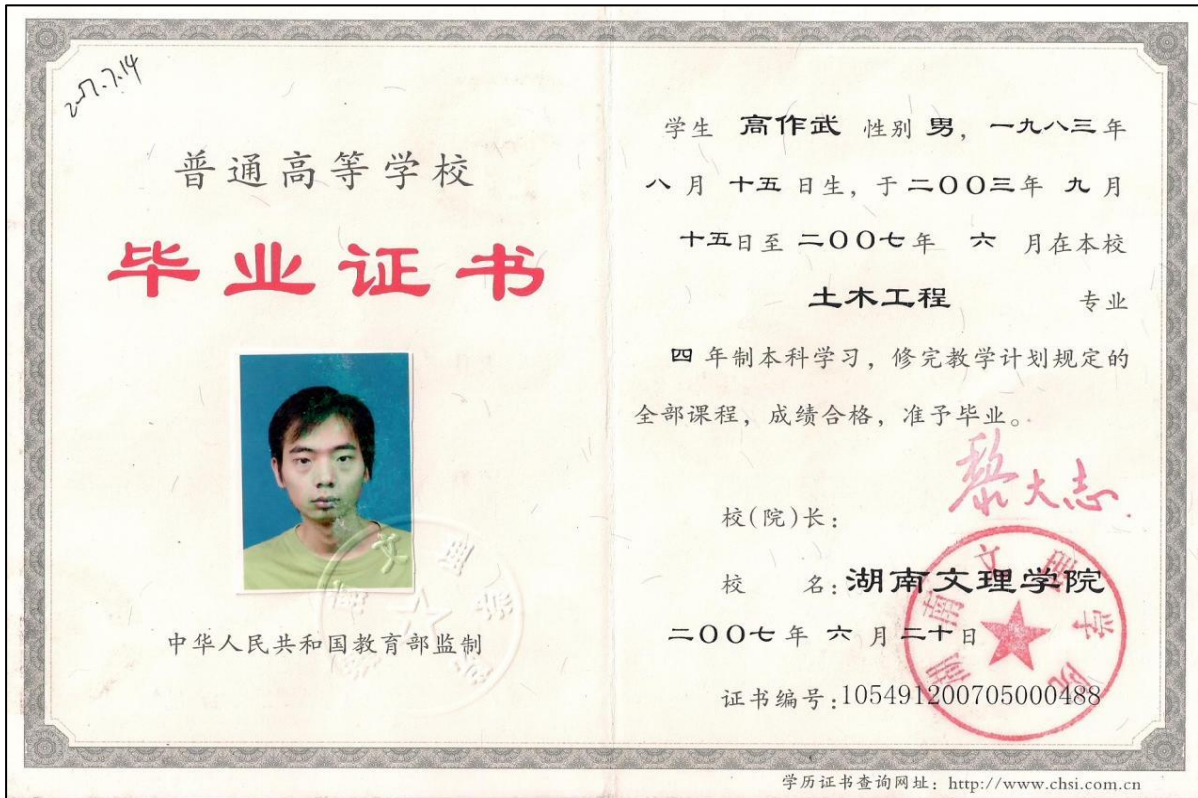 2007.7.14
普通高等学校
毕业证书
湖南文理学院
中华人民共和国教育部监制
学生 高作武 性别 男，一九八三年
八月 十五 日生，于二〇〇三年 九月
十五日至 二〇〇七年 六 月在本校
土木工程 专业
四 年制本科学习，修完教学计划规定的
全部课程，成绩合格，准予毕业。
校(院)长：黎大志
校 名：湖南文理学院
湖南文理学院
二〇〇七年 六 月二十日
证书编号：105491200705000488
学历证书查询网址：http://www.chsi.com.cn